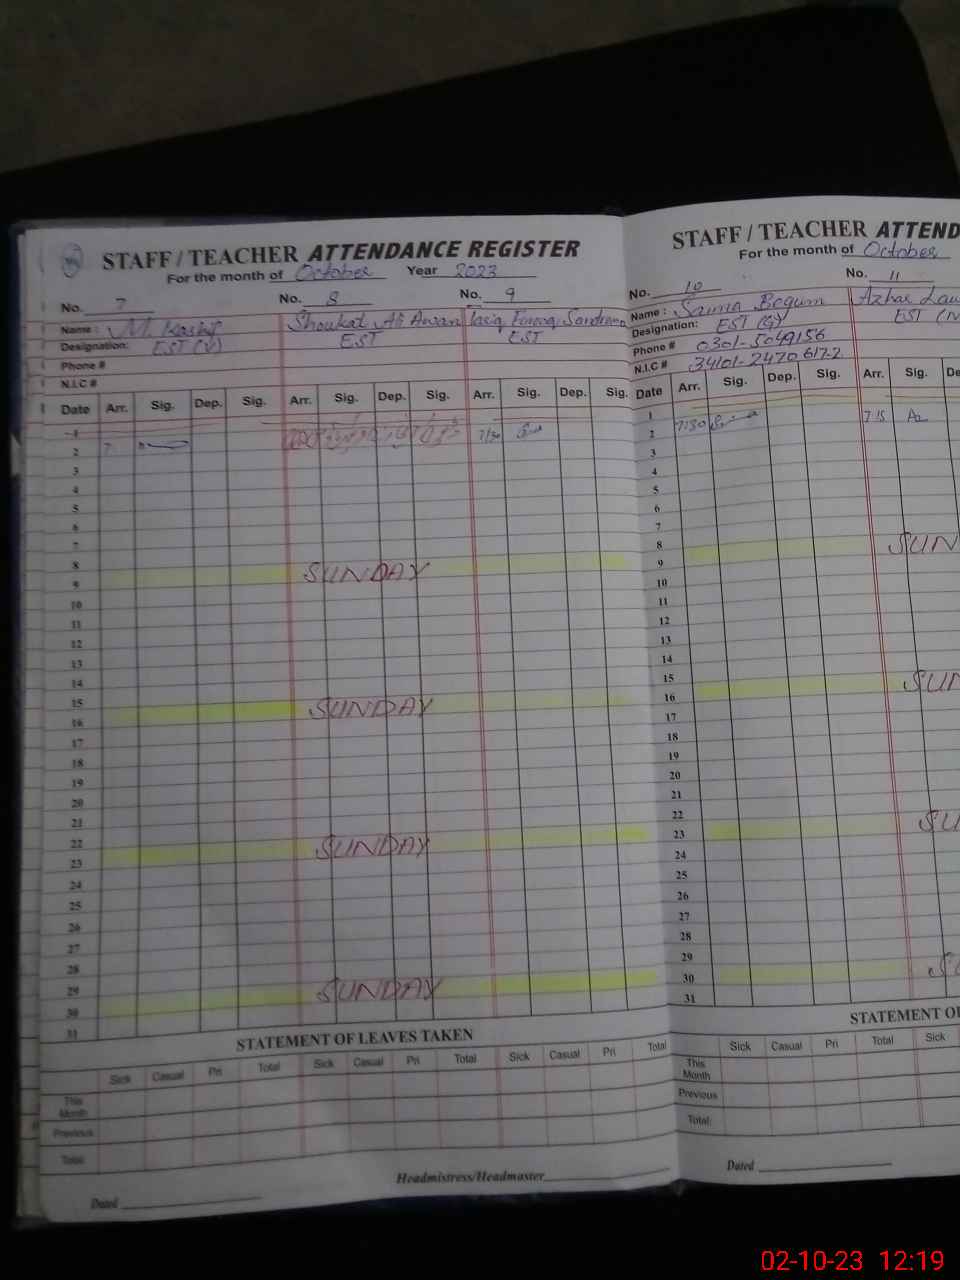 STAFF / TEACHER ATTENDANCE REGISTER
For the month of October Year 2023
No. 7 No. 8 No. 9
Name : M. Kashif Shoukat Ali Awan
Designation: EST (V) EST EST
Phone #
N.I.C #
Date Arr. Sig. Dep. Sig. Arr. Sig. Dep. Sig. Arr. Sig. Dep. Sig.
1
2 7 7/30
3
4
5
6
7
8 SUNDAY
9
10
11
12
13
14
15 SUNDAY
16
17
18
19
20
21
22 SUNDAY
23
24
25
26
27
28
29 SUNDAY
30
31
STATEMENT OF LEAVES TAKEN
Sick Casual Pri Total Sick Casual Pri Total Sick Casual Pri Total
This Month
Previous
Total
Headmistress/Headmaster
Dated
STAFF / TEACHER ATTEND
For the month of October
No. 10 No. 11
Name : Saima Begum Azhar
Designation: EST (G) EST
Phone # 0301-5049156
N.I.C # 34101-2470617-2
Date Arr. Sig. Dep. Sig. Arr. Sig. De
1
2 7:30 7 15 Az
3
4
5
6
7
8 SUN
9
10
11
12
13
14
15 SUN
16
17
18
19
20
21
22 SU
23
24
25
26
27
28
29 S
30
31
STATEMENT OF
Sick Casual Pri Total Sick
This Month
Previous
Total:
Dated
02-10-23 12:19